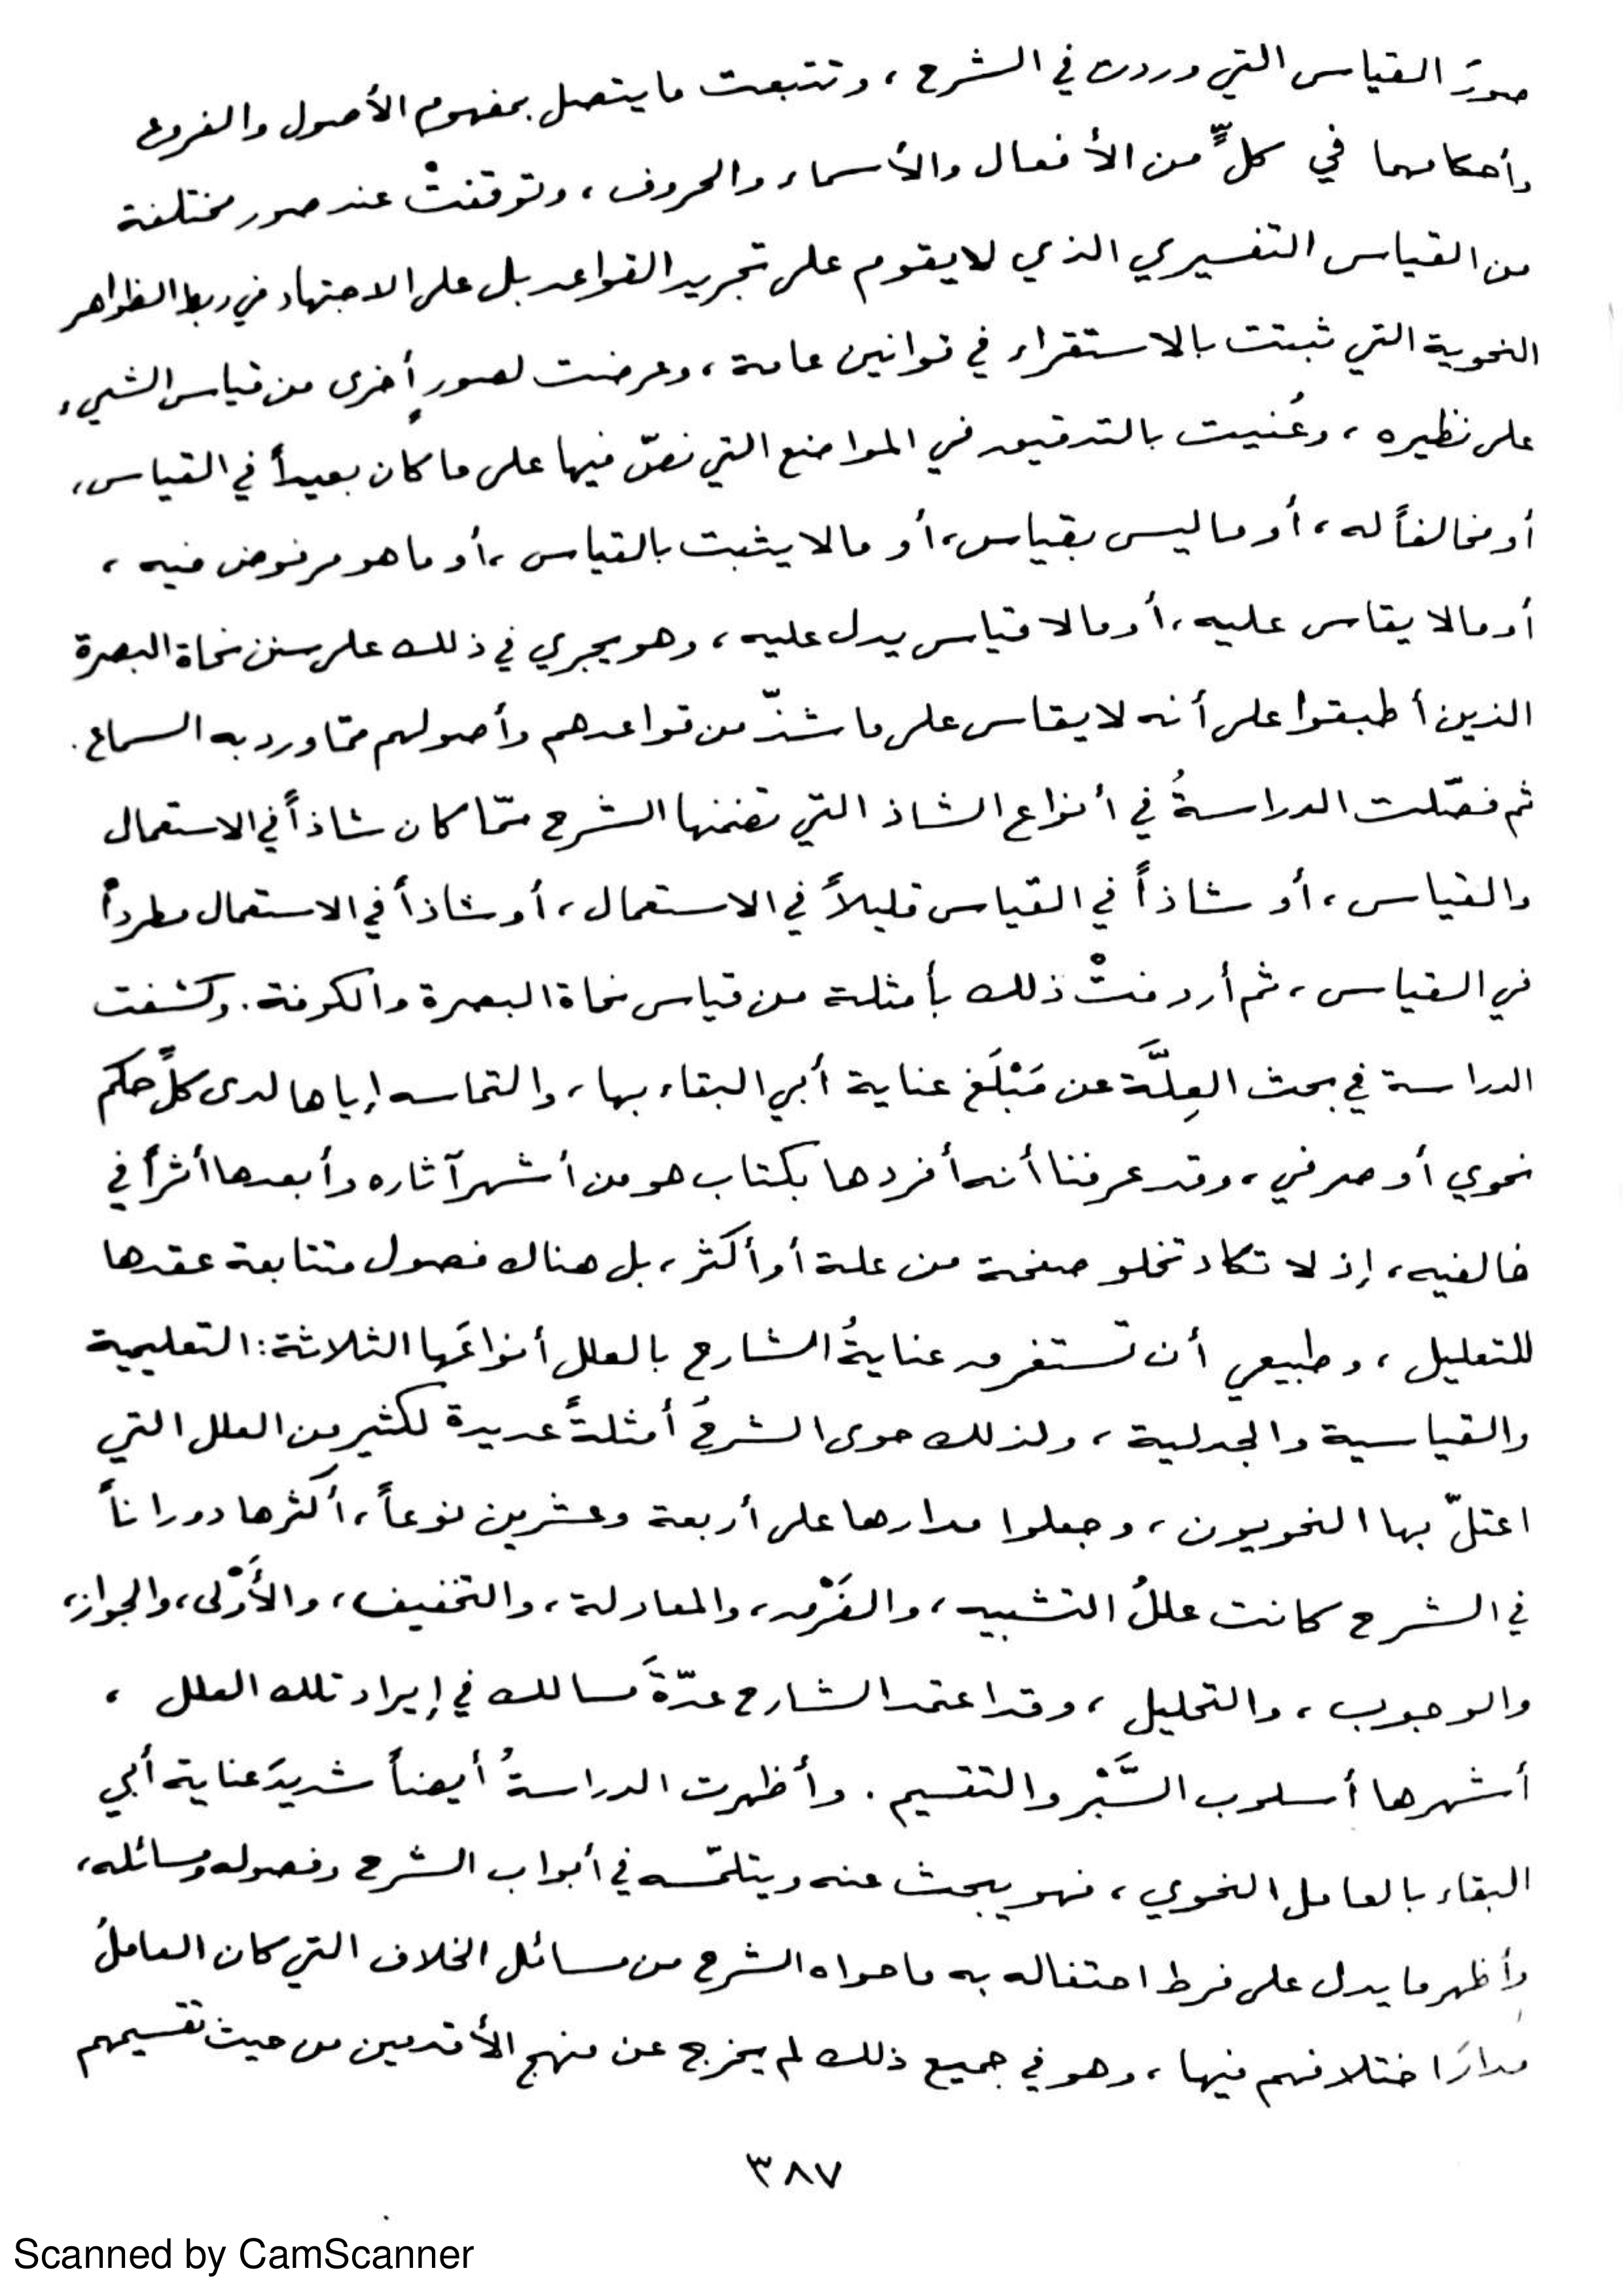 صورَ القياس التي وردت في الشرح ، وتتبعت ما يتصل بمفهوم الأصول والفروع
وأحكامهما في كلٍّ من الأفعال والأسماء والحروف ، وتوقفتْ عند صور مختلفة
من القياس التفسيري الذي لا يقوم على تجريد القواعد بل على الاجتهاد في ربط الظواهر
النحوية التي ثبتت بالاستقراء في قوانين عامة ، وعرضت لصورٍ أخرى من قياس الشيء
على نظيره ، وعُنيت بالتدقيق في المواضع التي نصّ فيها على ما كان بعيداً في القياس ،
أو مخالفاً له ، أو ما ليس بقياس ، أو مالا يثبت بالقياس ، أو ما هو مرفوض فيه ،
أو مالا يقاس عليه ، أو مالا قياس يدل عليه ، وهو يجري في ذلك على سنن نحاة البصرة
الذين أطبقوا على أنه لا يقاس على ما شذّ من قواعدهم وأصولهم ممّا ورد به السماع .
ثم فصّلت الدراسةُ في أنواع الشاذ التي تضمنها الشرح ممّا كان شاذاً في الاستعمال
والقياس ، أو شاذاً في القياس قليلاً في الاستعمال ، أو شاذاً في الاستعمال مطرداً
في القياس ، ثم أردفتْ ذلك بأمثلة من قياس نحاة البصرة والكوفة . وكشفت
الدراسة في بحث العِلَّة عن مَبْلَغ عناية أبي البقاء بها ، والتماسه إياها لدى كلّ حكم
نحوي أو صرفي ، وقد عرفنا أنه أفردها بكتاب هو من أشهر آثاره وأبعدها أثراً في
خالفيه ، إذ لا تكاد تخلو صفحة من علة أو أكثر ، بل هناك فصول متتابعة عقدها
للتعليل ، وطبيعي أن تستغرق عنايةُ الشارح بالعلل أنواعَها الثلاثة : التعليمية
والقياسية والجدلية ، ولذلك حوى الشرحُ أمثلةً عديدة لكثير من العلل التي
اعتلّ بها النحويون ، وجعلوا مدارها على أربعة وعشرين نوعاً ، أكثرها دوراناً
في الشرح كانت عللُ التشبيه ، والفَرْق ، والمعادلة ، والتخفيف ، والأَوْلى ، والجواز ،
والوجوب ، والتحليل ، وقد اعتمد الشارح عدّةَ مسالك في إيراد تلك العلل ،
أشهرها أسلوب السَّبْر والتقسيم . وأظهرت الدراسةُ أيضاً شديدَ عناية أبي
البقاء بالعامل النحوي ، فهو يبحث عنه ويتلمّسه في أبواب الشرح وفصوله ومسائله ،
وأظهر ما يدل على فرط احتفاله به ما حواه الشرح من مسائل الخلاف التي كان العاملُ
مدارَ اختلافهم فيها ، وهو في جميع ذلك لم يخرج عن منهج الأقدمين من حيث تقسيمهم
٣٨٧
Scanned by CamScanner